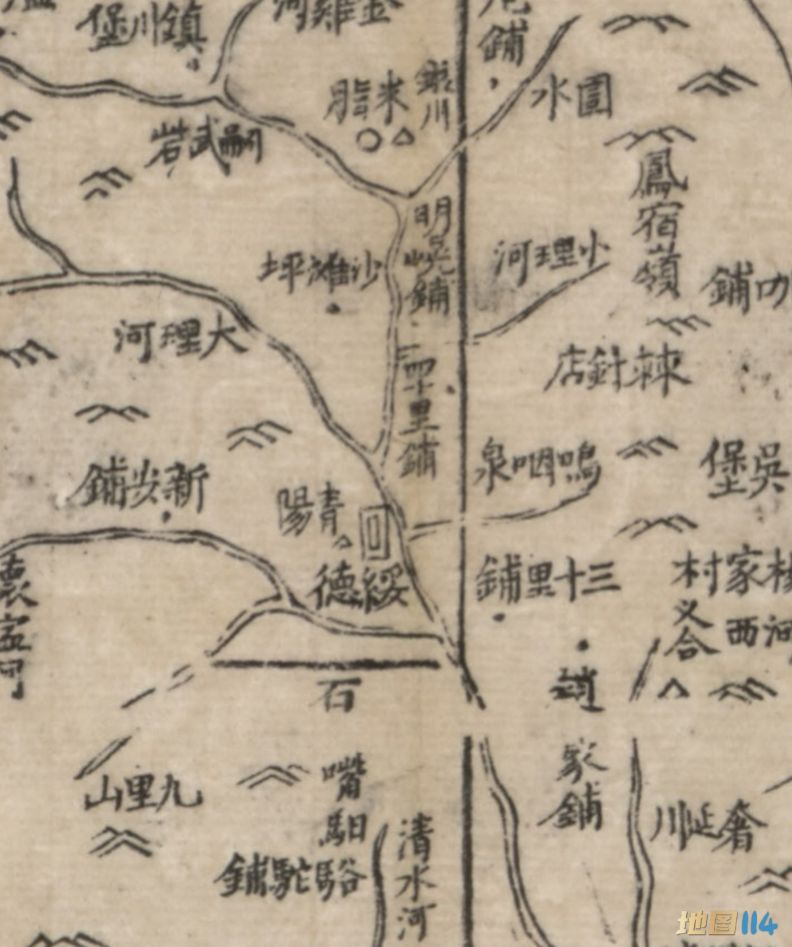 鎮川堡
金雞河
鋪
銀川
米脂
圁水
嗣武砦
鳳宿嶺
明
鋪
小理河
沙灘坪
鋪
大理河
棘針店
四十里鋪
鳴咽泉
吳堡
新步鋪
青陽
綏德
三十里鋪
楊家村
河西
义合
懷寧河
石
嘴馹
趙家鋪
九里山
奢延川
駱駝鋪
清水河
地图114